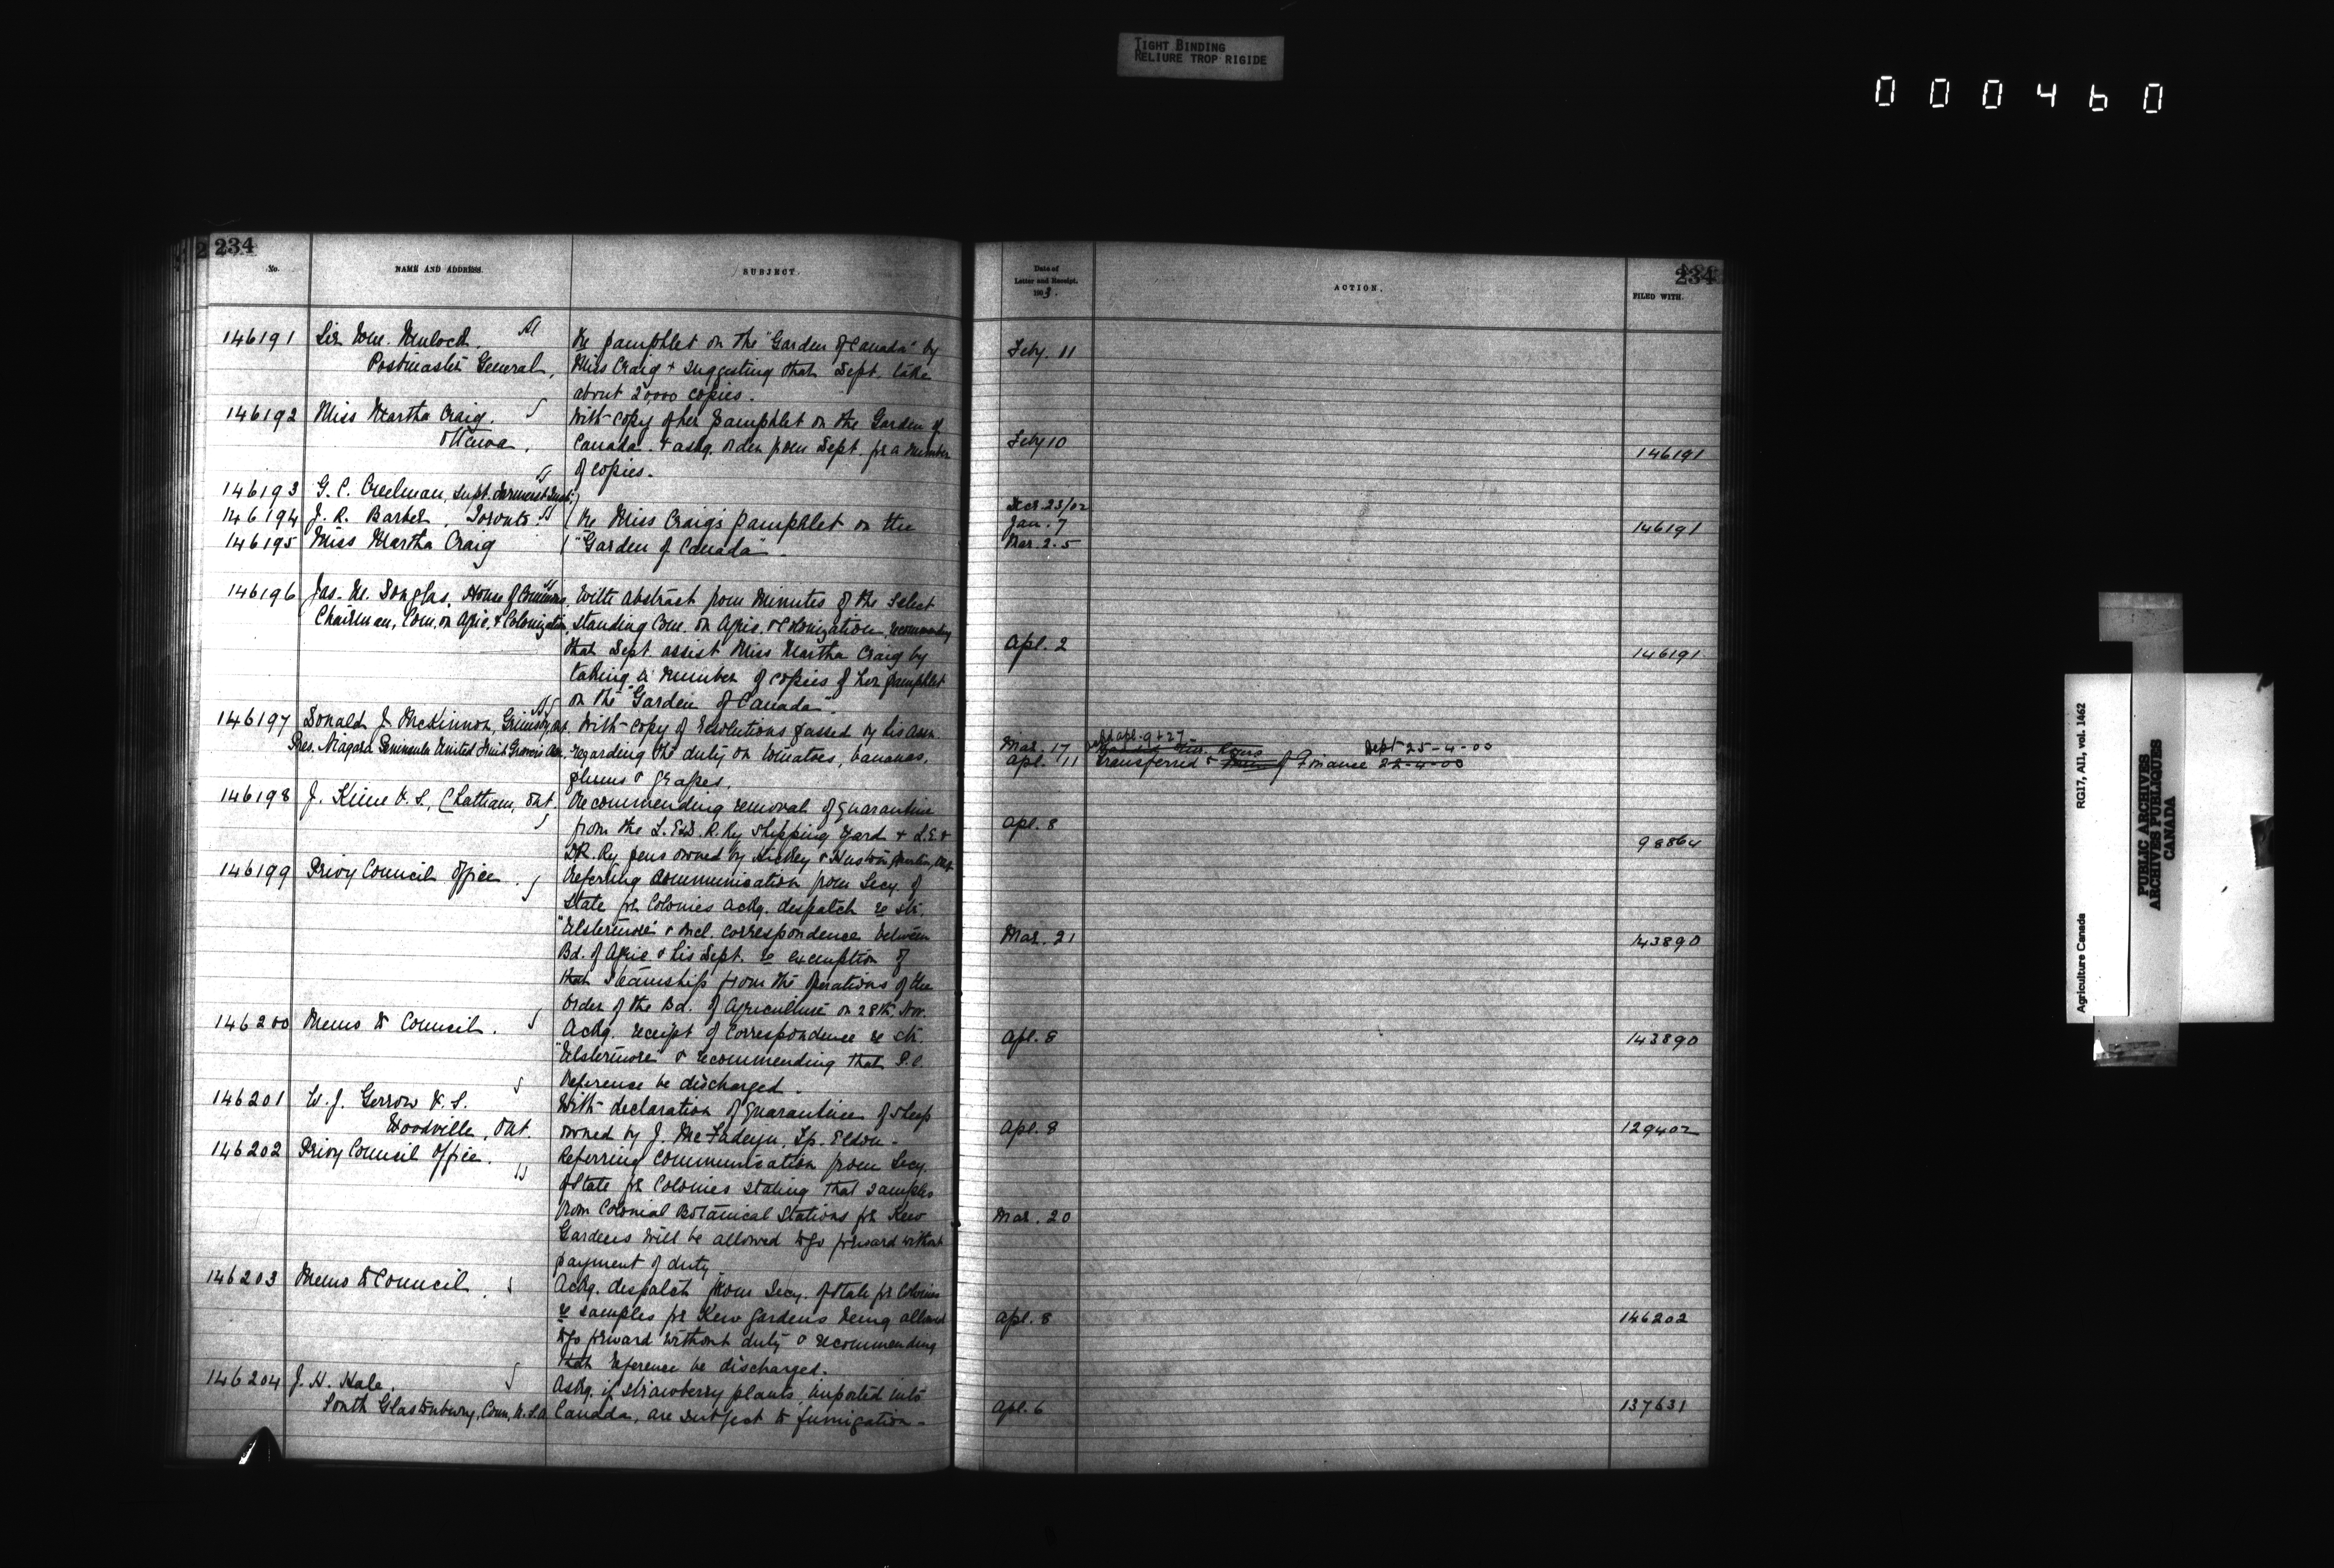 TIGHT BINDING
RELIURE TROP RIGIDE
000460
234
No.
NAME AND ADDRESS.
SUBJECT.
146191 Sir Wm. Mulock.
Postmaster General,
Re pamphlet on the "Garden of Canada" by
Miss Craig & suggesting that Dept. take
about 20000 copies.
146192 Miss Martha Craig.
Ottawa,
With copy of her pamphlet on the Garden of
Canada. & askg. order from Dept. for a number
of copies.
146193 G. C. Creelman, Supt. Farmers' Inst.
146194 J. R. Barber, Toronto.
146195 Miss Martha Craig
Re Miss Craig's pamphlet on the
"Garden of Canada".
146196 Jas. M. Douglas, House of Commons,
Chairman, Com. on Agric. & Colonization,
With abstract from minutes of the Select
Standing Com. on Agric. & Colonization, recommending
that Dept assist Miss Martha Craig by
taking a number of copies of her pamphlet
on the "Garden of Canada".
146197 Donald J. McKinnon, Grimsby, Ont.
Pres. Niagara Peninsula United Fruit Growers Assn.
With copy of resolutions passed by his Assn.
regarding the duty on tomatoes, bananas,
plums & grapes.
146198 J. Kime V.S., Chatham, Ont.
Recommending removal of quarantine
from the L.E. & D. R. Ry shipping yard & L.E. &
D.R. Ry pens owned by Hickey &
146199 Privy Council Office.
Referring communication from Secy. of
State for Colonies ackg. despatch re str.
"Ulstermore" & encl. correspondence between
Bd. of Agric & his Dept. re exemption of
that steamship from the operations of the
Order of the Bd. of Agriculture on 28th. Nov.
146200 Memo to Council.
Ackg. receipt of correspondence re str.
"Ulstermore" & recommending that P.C.
Reference be discharged.
146201 W. J. Gerrow V.S.
Woodville, Ont.
With declaration of quarantine of sheep
owned by J. McFadeyn, Tp. Eldon.
146202 Privy Council Office.
Referring communication from Secy.
of State for Colonies stating that samples
from Colonial Botanical Stations for Kew
Gardens will be allowed to go forward without
payment of duty
146203 Memo to Council.
Ackg. despatch from Secy. of State for Colonies
re samples for Kew Gardens being allowed
to go forward without duty & recommending
that reference be discharged.
146204 J. H. Hale,
South Glastonbury, Conn, U.S.A.
Askg. if strawberry plants imported into
Canada, are subject to fumigation.
Date of
Letter and Receipt.
1903.
ACTION.
234
FILED WITH.
Feby. 11
Feby 10
146191
Dec. 23/02
Jan. 7
146191
Mar. 25
Apl. 2
146191
Mar. 17
Apl. 11 transferred to Finance 22-4-03
Dept 25-4-03
Apl. 8
98864
Mar. 21
143890
Apl. 8
143890
Apl. 8
129402
Mar. 20
Apl. 8
146202
Apl. 6
137631
Agriculture Canada
RG17, AII, vol. 1462
PUBLIC ARCHIVES
ARCHIVES PUBLIQUES
CANADA